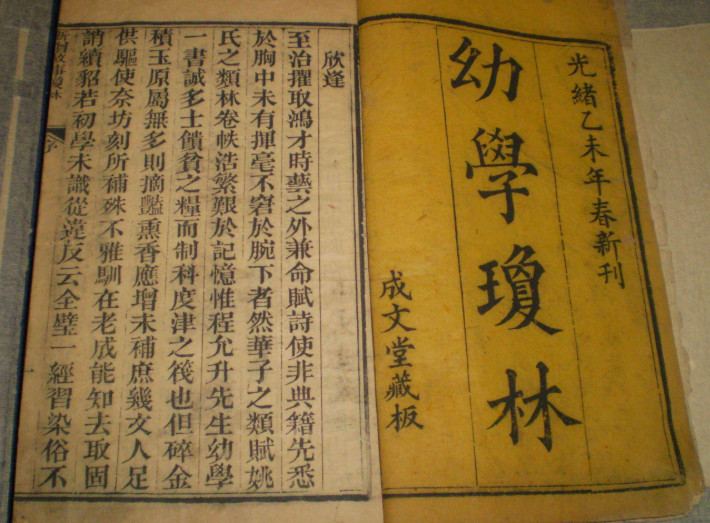 光緒乙未年春新刊
幼學瓊林
成文堂藏板
欣逢
至治擢取鴻才時藝之外兼命賦詩使非典籍先悉
於胸中未有揮毫不窘於腕下者然華子之類賦姚
氏之類林卷帙浩繁艱於記憶惟程允升先生幼學
一書誠多士饋貧之糧而制科度津之筏也但碎金
積玉原屬無多則摘豔熏香應增未補庶幾文人足
供驅使奈坊刻所補殊不雅馴在老成能知去取固
誚續貂若初學未識從違反云全璧一經習染俗不
序